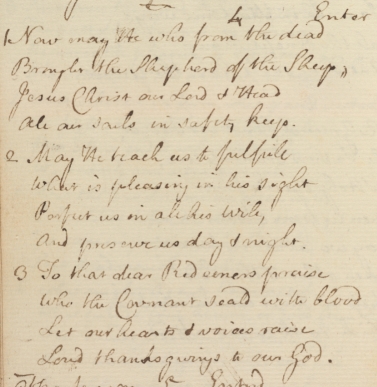 4 Enter
1 Now may He who from the dead
Brought the Shepherd of the Sheep,
Jesus Christ our Lord & Head
All our souls in safety keep.
2 May He teach us to fulfill
What is pleasing in his sight
Perfect us in all his will,
And preserve us day & night.
3 To that dear Redeemers praise
Who the Covenant seald with blood
Let our hearts & voices raise
Loud thanksgivings to our God.